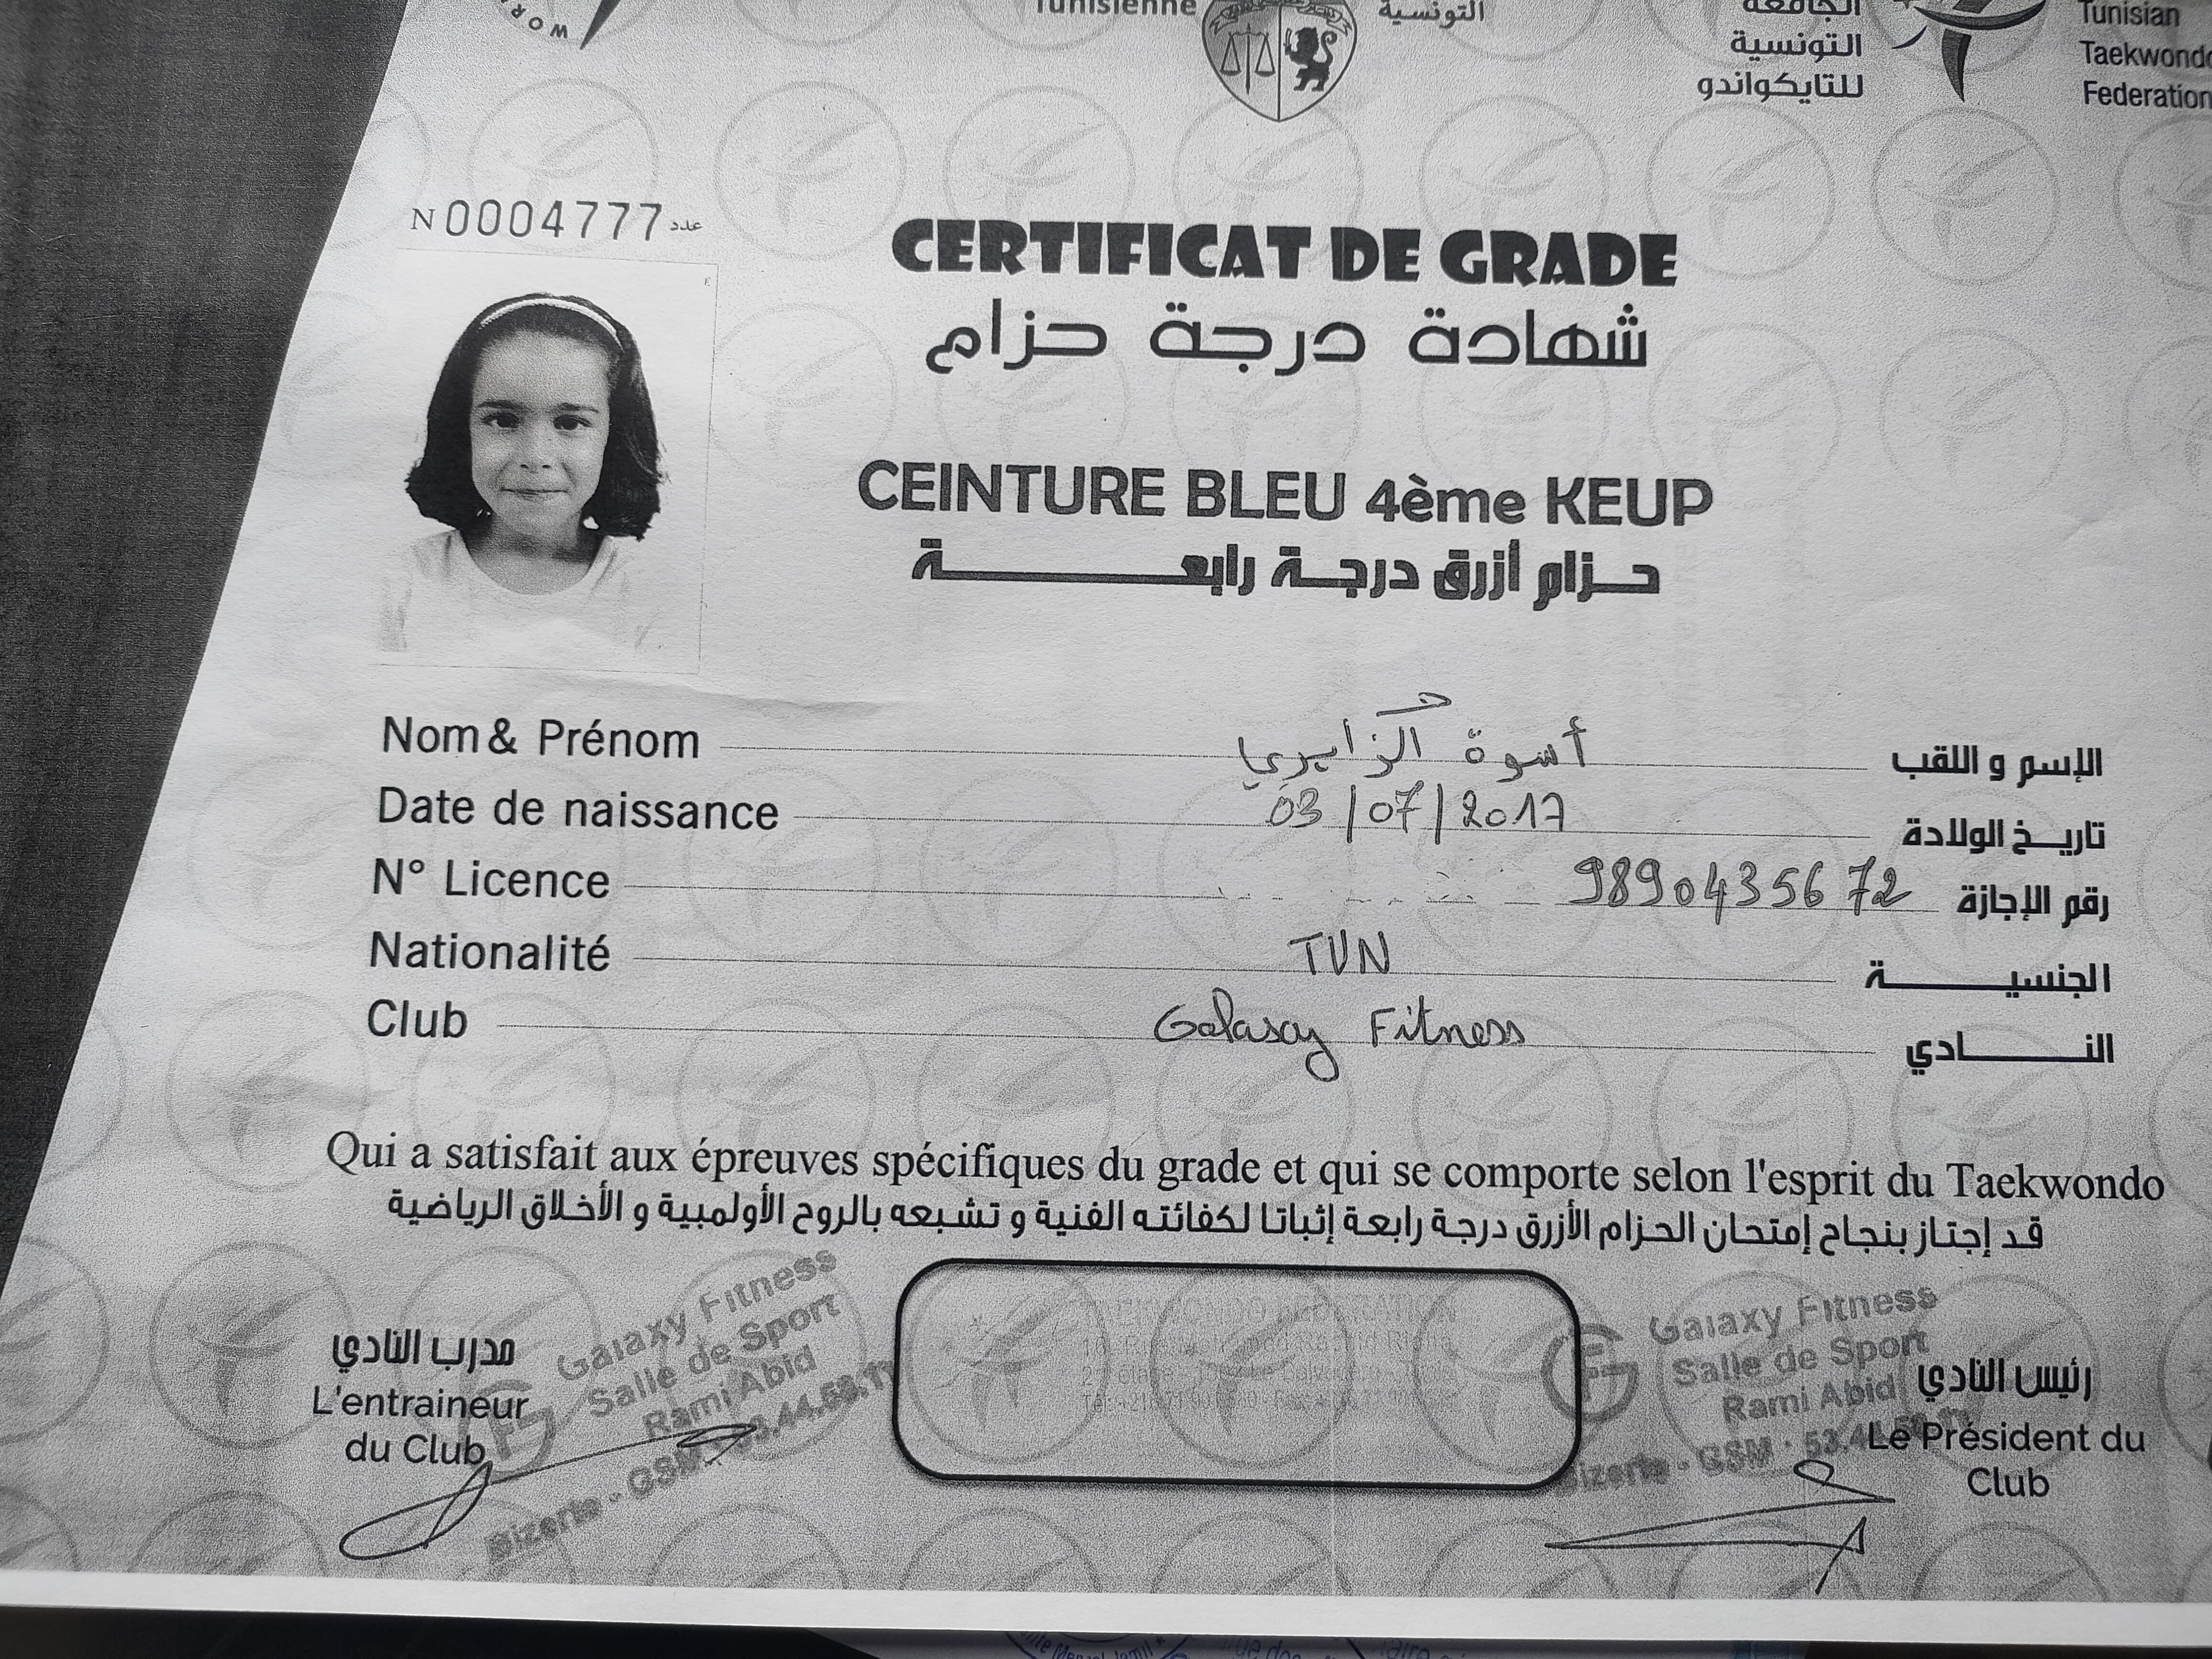 WOR
Tunisienne
التونسية
الجامعة
التونسية
للتايكواندو
Tunisian
Taekwondo
Federation
N 0004777 عدد
CERTIFICAT DE GRADE
شهادة درجة حزام
CEINTURE BLEU 4ème KEUP
حزام أزرق درجة رابعة
Nom & Prénom أسوة الجزايري الإسم و اللقب
Date de naissance 03/07/2017 تاريخ الولادة
N° Licence 9890435672 رقم الإجازة
Nationalité TUN الجنسية
Club Galaxy Fitness النادي
Qui a satisfait aux épreuves spécifiques du grade et qui se comporte selon l'esprit du Taekwondo
قد إجتاز بنجاح إمتحان الحزام الأزرق درجة رابعة إثباتا لكفائته الفنية و تشبعه بالروح الأولمبية و الأخلاق الرياضية
مدرب النادي
L'entraineur
du Club
Galaxy Fitness
Salle de Sport
Rami Abid
Bizerte - GSM
Galaxy Fitness
Salle de Sport
Rami Abid
Bizerte - GSM : 53.44
رئيس النادي
Le Président du
Club